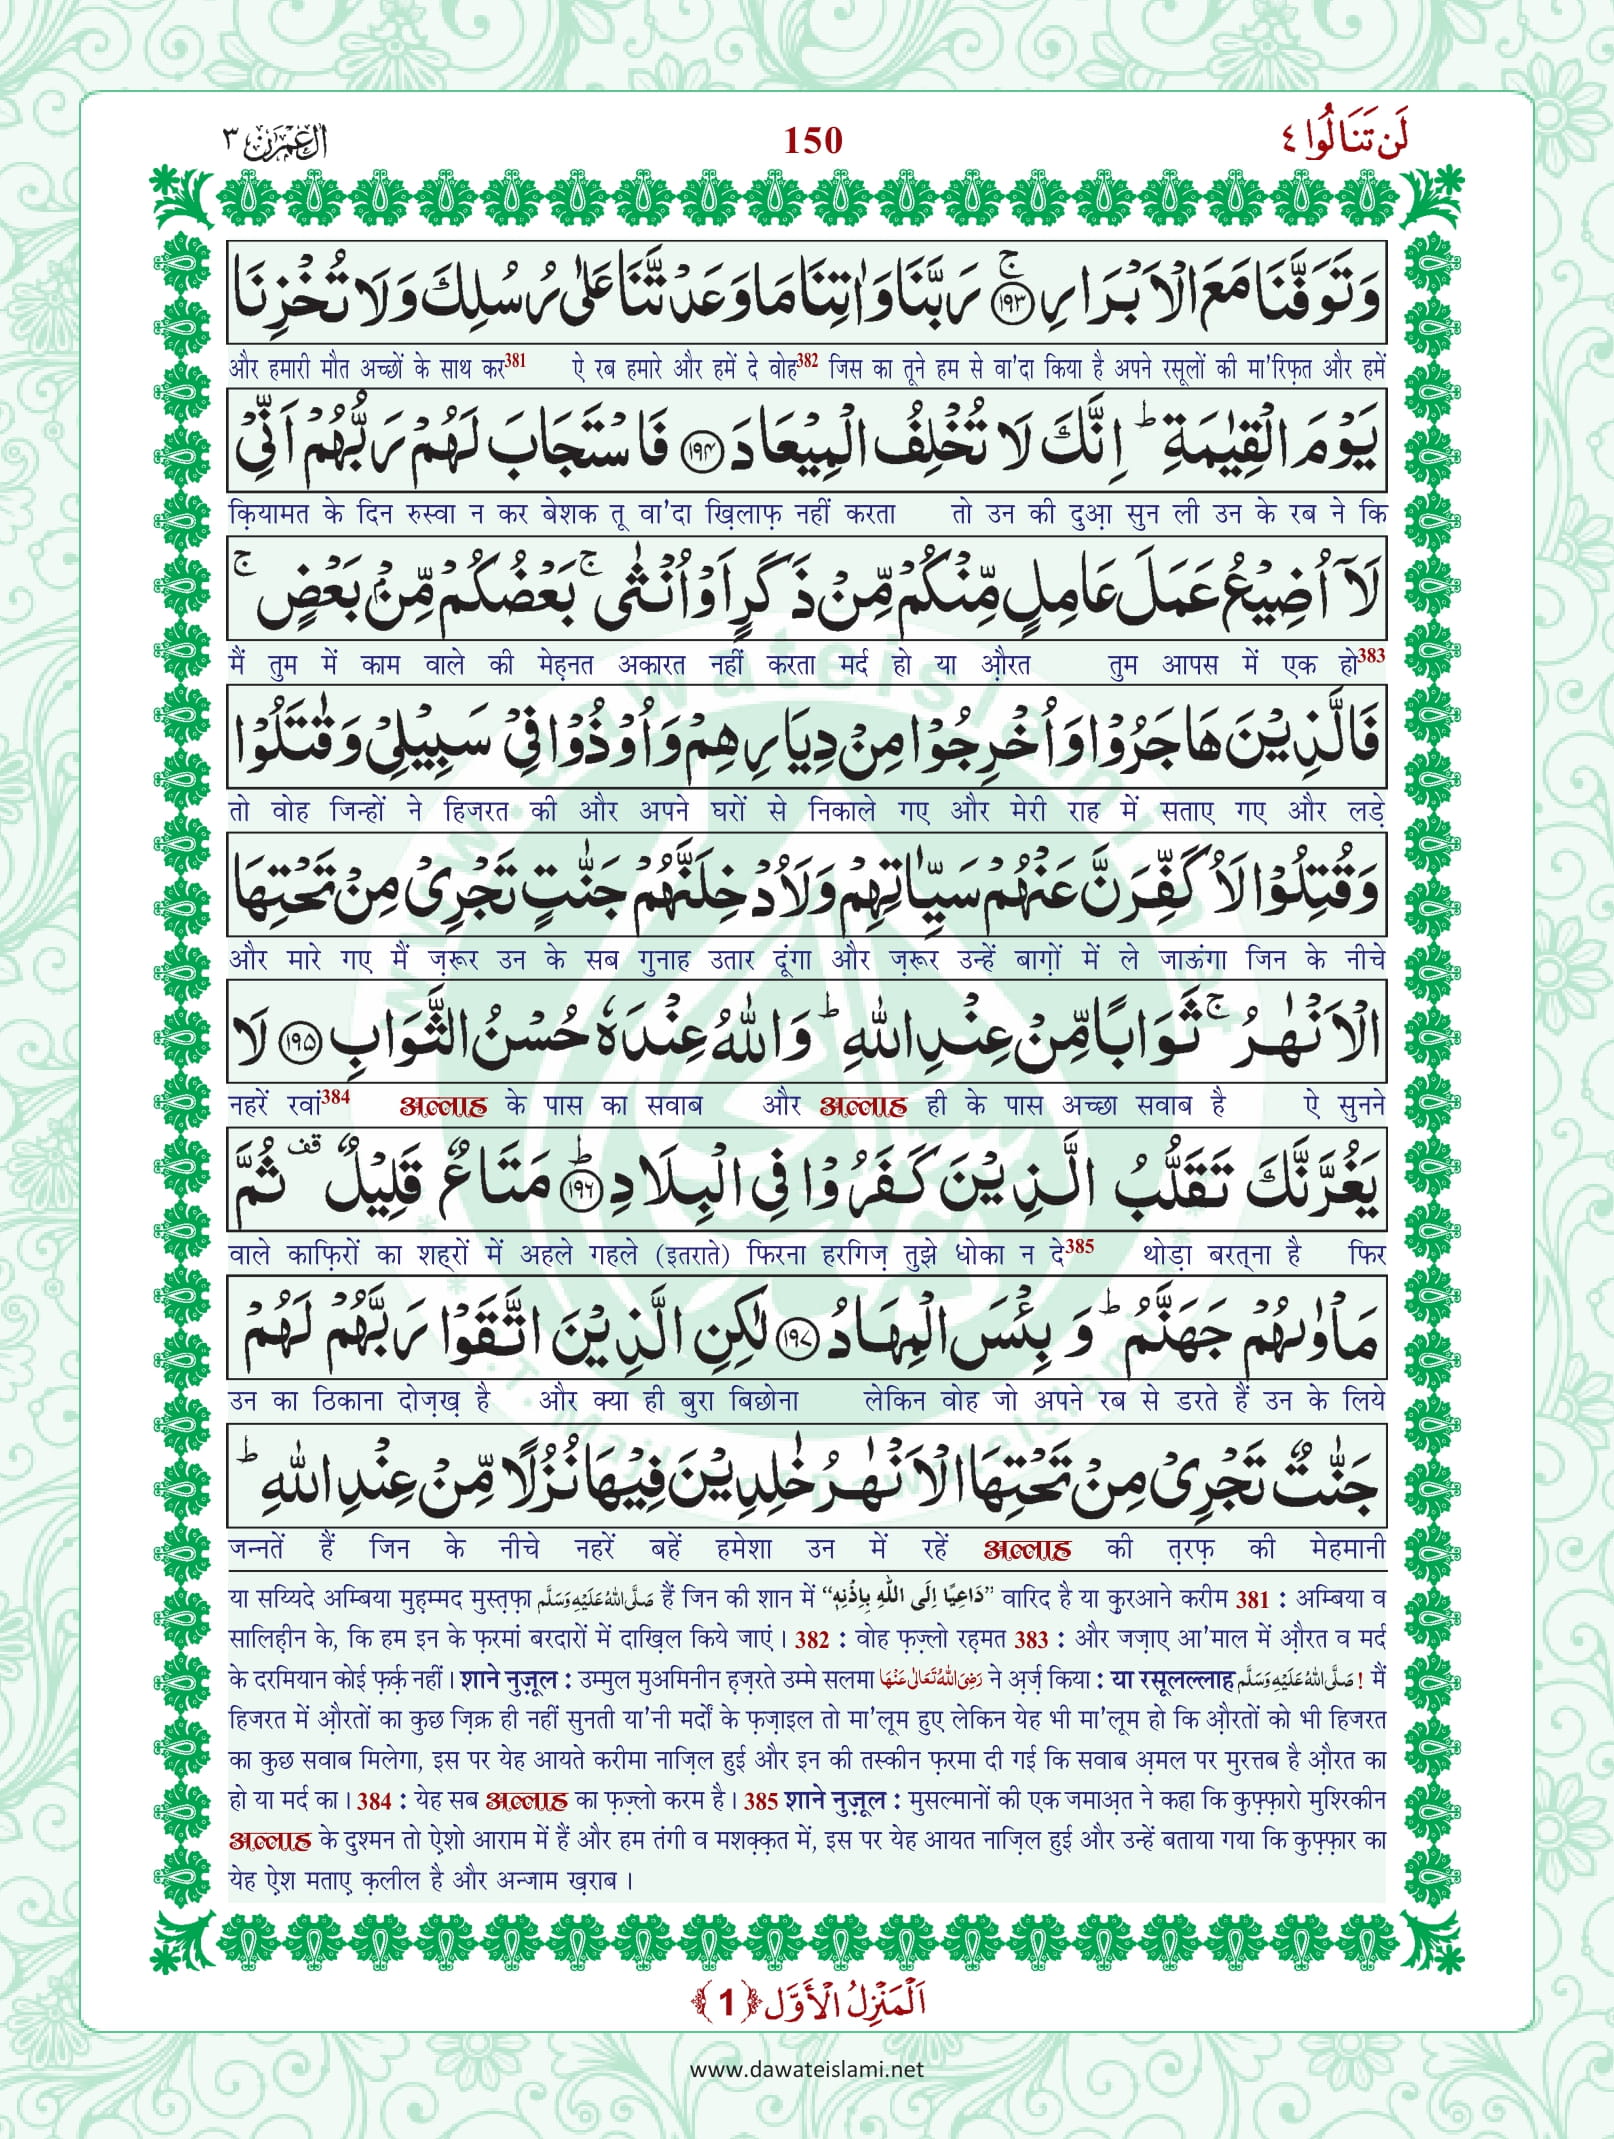 اٰل عمرٰن ٣
150
لَنْ تَنَالُوا ٤
وَتَوَفَّنَا مَعَ الْاَبْرَارِ ۚ﴿۱۹۳﴾ رَبَّنَا وَاٰتِنَا مَا وَعَدْتَّنَا عَلٰى رُسُلِكَ وَلَا تُخْزِنَا
और हमारी मौत अच्छों के साथ कर381 ऐ रब हमारे और हमें दे वोह382 जिस का तूने हम से वा'दा किया है अपने रसूलों की मा'रिफ़त और हमें
يَوْمَ الْقِيٰمَةِ ؕ اِنَّكَ لَا تُخْلِفُ الْمِيْعَادَ ﴿۱۹۴﴾ فَاسْتَجَابَ لَهُمْ رَبُّهُمْ اَنِّيْ
क़ियामत के दिन रुस्वा न कर बेशक तू वा'दा ख़िलाफ़ नहीं करता तो उन की दुआ़ सुन ली उन के रब ने कि
لَاۤ اُضِيْعُ عَمَلَ عَامِلٍ مِّنْكُمْ مِّنْ ذَكَرٍ اَوْ اُنْثٰى ۚ بَعْضُكُمْ مِّنْۢ بَعْضٍ ۚ
मैं तुम में काम वाले की मेह़नत अकारत नहीं करता मर्द हो या औ़रत तुम आपस में एक हो383
فَالَّذِيْنَ هَاجَرُوْا وَاُخْرِجُوْا مِنْ دِيَارِهِمْ وَاُوْذُوْا فِيْ سَبِيْلِيْ وَقٰتَلُوْا
तो वोह जिन्हों ने हिजरत की और अपने घरों से निकाले गए और मेरी राह में सताए गए और लड़े
وَقُتِلُوْا لَاُكَفِّرَنَّ عَنْهُمْ سَيِّاٰتِهِمْ وَلَاُدْخِلَنَّهُمْ جَنّٰتٍ تَجْرِيْ مِنْ تَحْتِهَا
और मारे गए मैं ज़रूर उन के सब गुनाह उतार दूंगा और ज़रूर उन्हें बाग़ों में ले जाऊंगा जिन के नीचे
الْاَنْهٰرُ ۚ ثَوَابًا مِّنْ عِنْدِ اللّٰهِ ؕ وَاللّٰهُ عِنْدَهٗ حُسْنُ الثَّوَابِ ﴿۱۹۵﴾ لَا
नहरें रवां384 अल्लाह के पास का सवाब और अल्लाह ही के पास अच्छा सवाब है ऐ सुनने
يَغُرَّنَّكَ تَقَلُّبُ الَّذِيْنَ كَفَرُوْا فِي الْبِلَادِ ؕ﴿۱۹۶﴾ مَتَاعٌ قَلِيْلٌ ۟ قف ثُمَّ
वाले काफ़िरों का शहरों में अहले गहले (इतराते) फिरना हरगिज़ तुझे धोका न दे385 थोड़ा बरत्ना है फिर
مَاْوٰىهُمْ جَهَنَّمُ ؕ وَ بِئْسَ الْمِهَادُ ﴿۱۹۷﴾ لٰكِنِ الَّذِيْنَ اتَّقَوْا رَبَّهُمْ لَهُمْ
उन का ठिकाना दोज़ख़ है और क्या ही बुरा बिछोना लेकिन वोह जो अपने रब से डरते हैं उन के लिये
جَنّٰتٌ تَجْرِيْ مِنْ تَحْتِهَا الْاَنْهٰرُ خٰلِدِيْنَ فِيْهَا نُزُلًا مِّنْ عِنْدِ اللّٰهِ ؕ
जन्नतें हैं जिन के नीचे नहरें बहें हमेशा उन में रहें अल्लाह की त़रफ़ की मेहमानी
या सय्यिदे अम्बिया मुह़म्मद मुस्त़फ़ा صَلَّى اللهُ عَلَيْهِ وَسَلَّم हैं जिन की शान में “دَاعِيًا اِلَى اللّٰهِ بِاِذْنِهٖ” वारिद है या क़ुरआने करीम 381 : अम्बिया व
सालिह़ीन के, कि हम इन के फ़रमां बरदारों में दाख़िल किये जाएं। 382 : वोह फ़ज़्लो रह़मत 383 : और जज़ाए आ'माल में औ़रत व मर्द
के दरमियान कोई फ़र्क़ नहीं। शाने नुज़ूल : उम्मुल मुअमिनीन ह़ज़रते उम्मे सलमा رَضِیَ اللهُ تَعَالٰی عَنْهَا ने अ़र्ज़ किया : या रसूलल्लाह صَلَّى اللهُ عَلَيْهِ وَسَلَّم ! मैं
हिजरत में औ़रतों का कुछ ज़िक्र ही नहीं सुनती या'नी मर्दों के फ़ज़ाइल तो मा'लूम हुए लेकिन येह भी मा'लूम हो कि औ़रतों को भी हिजरत
का कुछ सवाब मिलेगा, इस पर येह आयते करीमा नाज़िल हुई और इन की तस्कीन फ़रमा दी गई कि सवाब अ़मल पर मुरत्तब है औ़रत का
हो या मर्द का। 384 : येह सब अल्लाह का फ़ज़्लो करम है। 385 शाने नुज़ूल : मुसल्मानों की एक जमाअ़त ने कहा कि कुफ़्फ़ारो मुश्रिकीन
अल्लाह के दुश्मन तो ऐ़शो आराम में हैं और हम तंगी व मशक़्क़त में, इस पर येह आयत नाज़िल हुई और उन्हें बताया गया कि कुफ़्फ़ार का
येह ऐ़श मताए क़लील है और अन्जाम ख़राब।
اَلْمَنْزِلُ الْاَوَّل ﴿1﴾
www.dawateislami.net